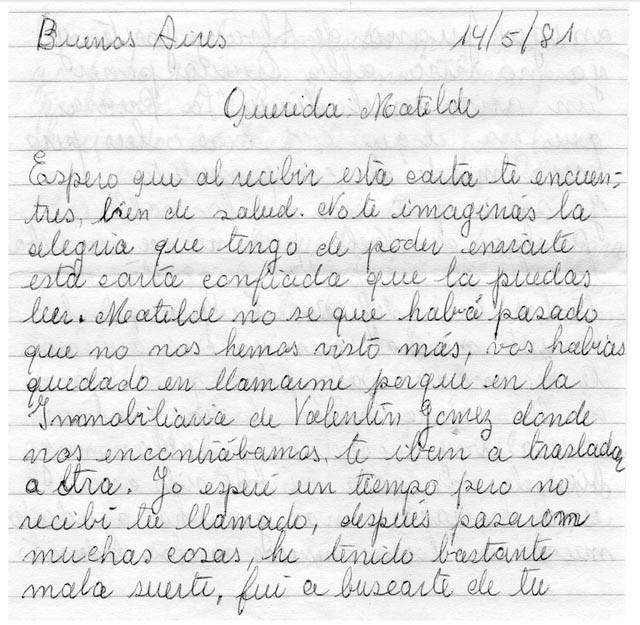 Buenos Aires 14/5/81
Querida Matilde
Espero que al recibir esta carta te encuen-
tres, bien de salud. No te imaginás la
alegria que tengo de poder enviarte
esta carta confiada que la puedas
leer. Matilde no se que habrá pasado
que no nos hemos visto más, vos habias
quedado en llamarme porque en la
Inmobiliaria de Valentín Gomez donde
nos encontrábamos, te iban a trasladar
a otra. Yo esperé un tiempo pero no
recibí tu llamado, después pasaron
muchas cosas, he tenido bastante
mala suerte, fuí a buscarte de tu